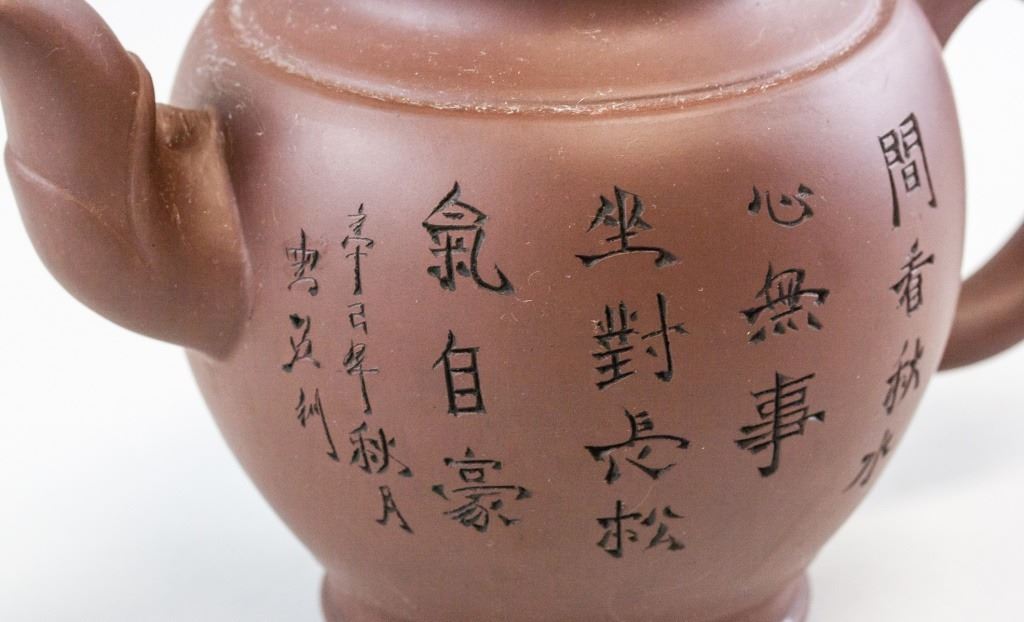 間看秋水
心無事
坐對長松
氣自豪
辛巳年秋月